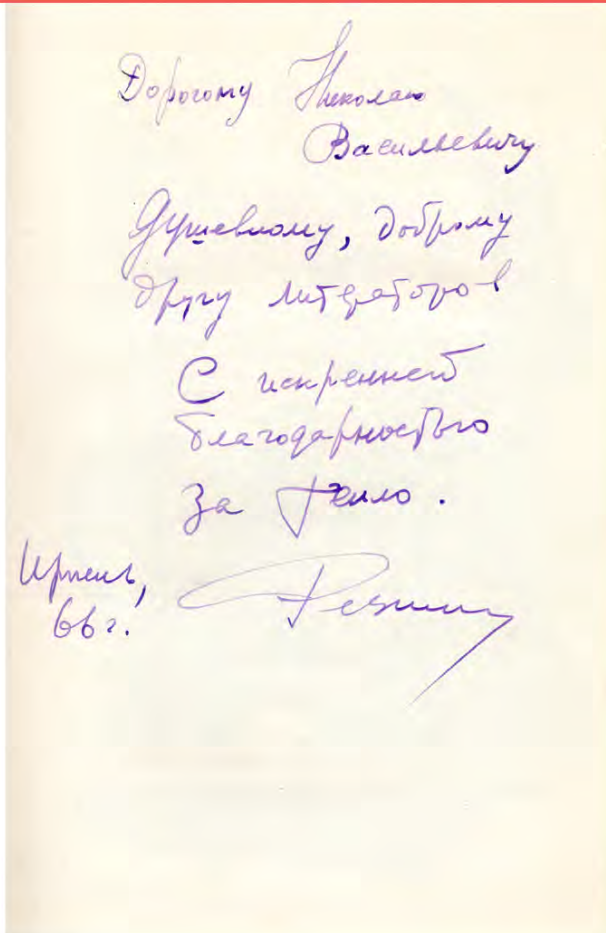 Дорогому Николаю
Васильевичу
Душевному, доброму
другу литераторов
С искренней
благодарностью
За тепло.
Ирпень,
66 г.